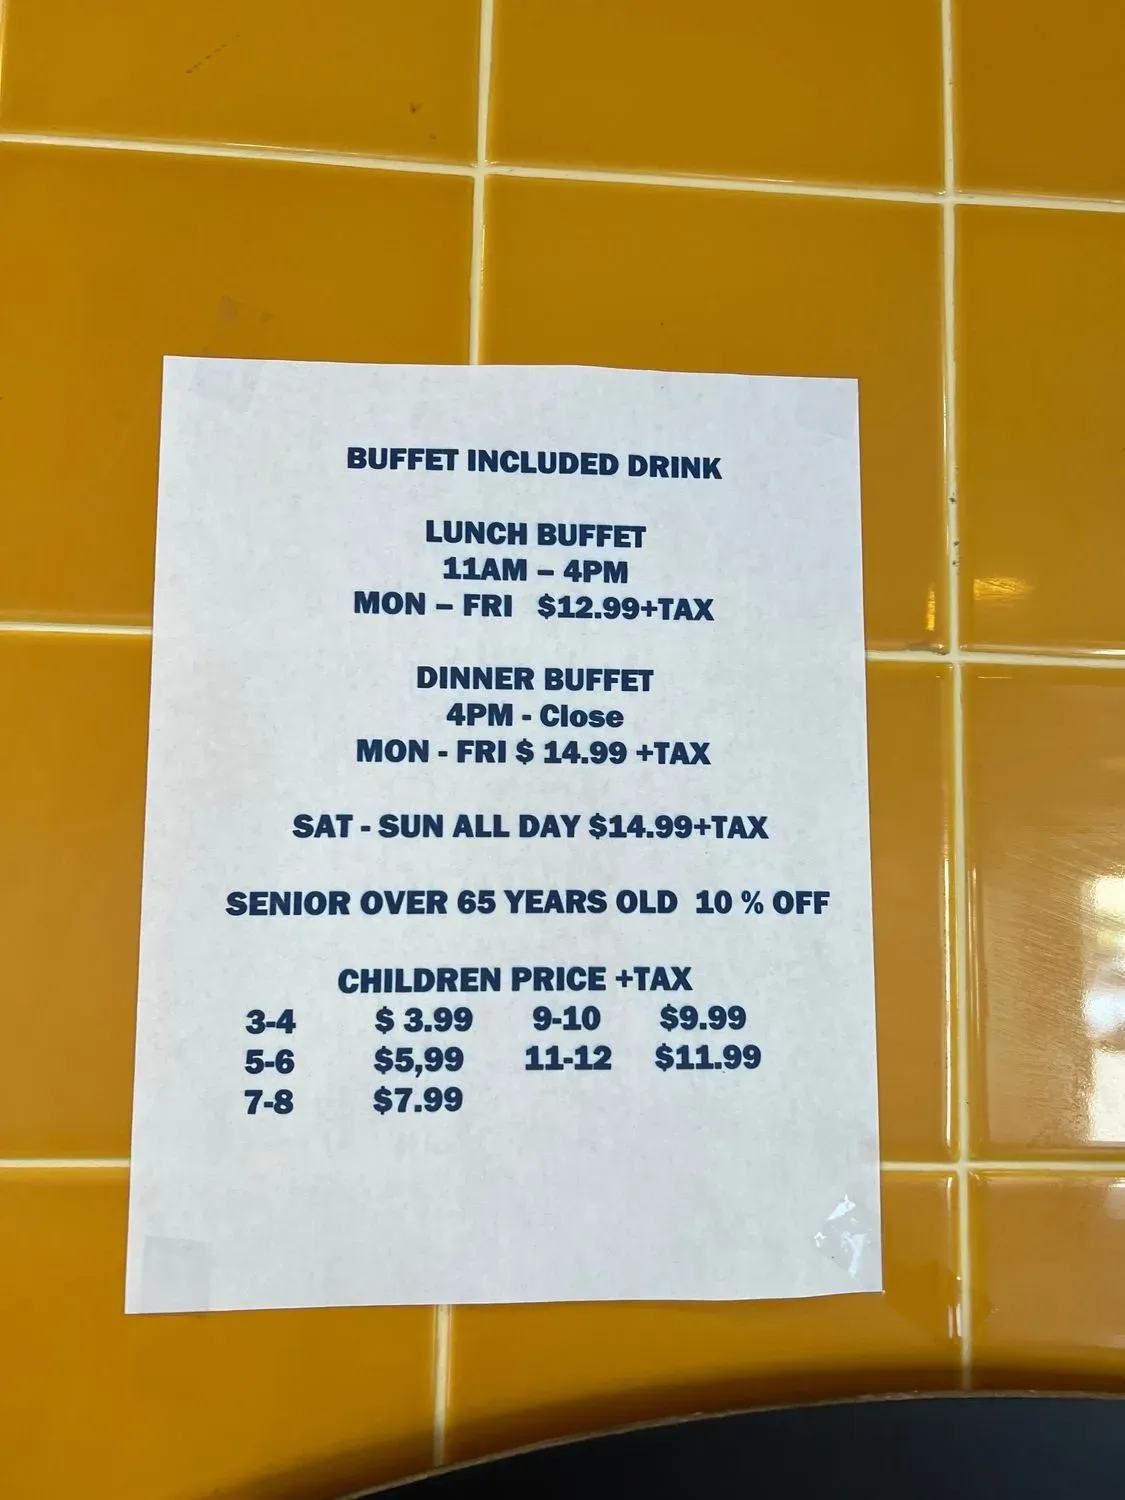 BUFFET INCLUDED DRINK
LUNCH BUFFET
11AM – 4PM
MON – FRI $12.99+TAX
DINNER BUFFET
4PM - Close
MON - FRI $ 14.99 +TAX
SAT - SUN ALL DAY $14.99+TAX
SENIOR OVER 65 YEARS OLD 10 % OFF
CHILDREN PRICE +TAX
3-4 $ 3.99 9-10 $9.99
5-6 $5,99 11-12 $11.99
7-8 $7.99